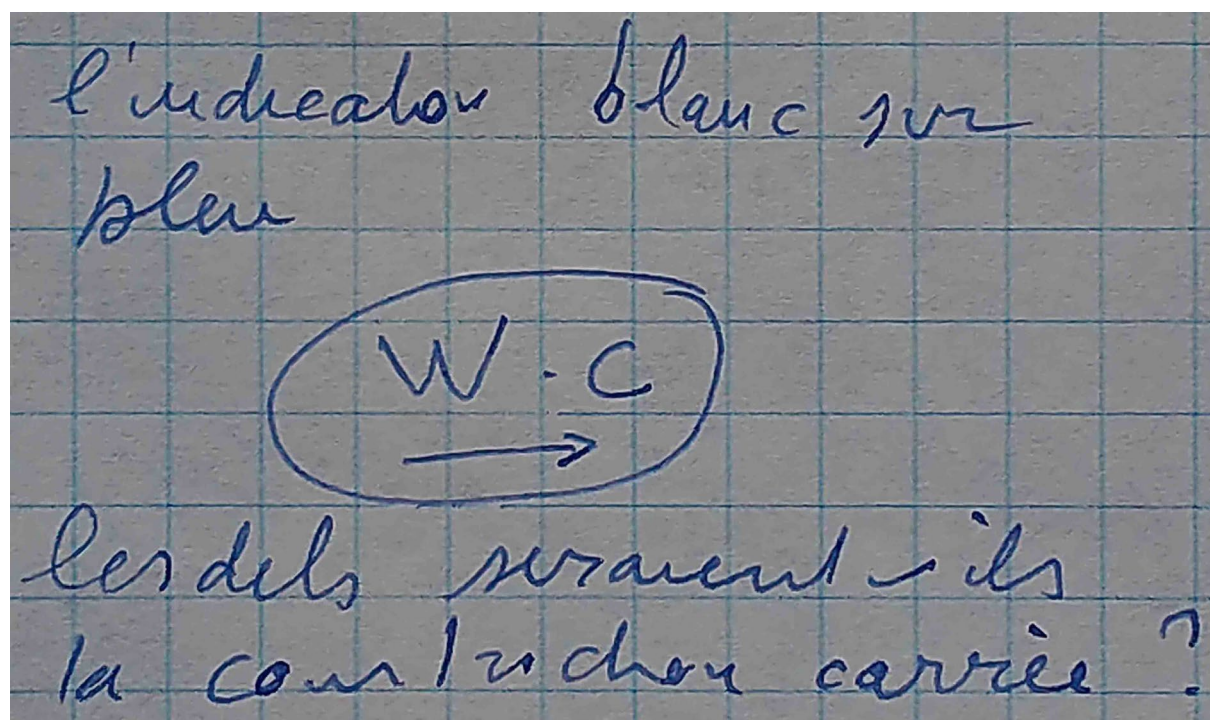 l'indication blanc sur
bleu
W.C
→
lesdits seraient-ils
la construction carrée ?